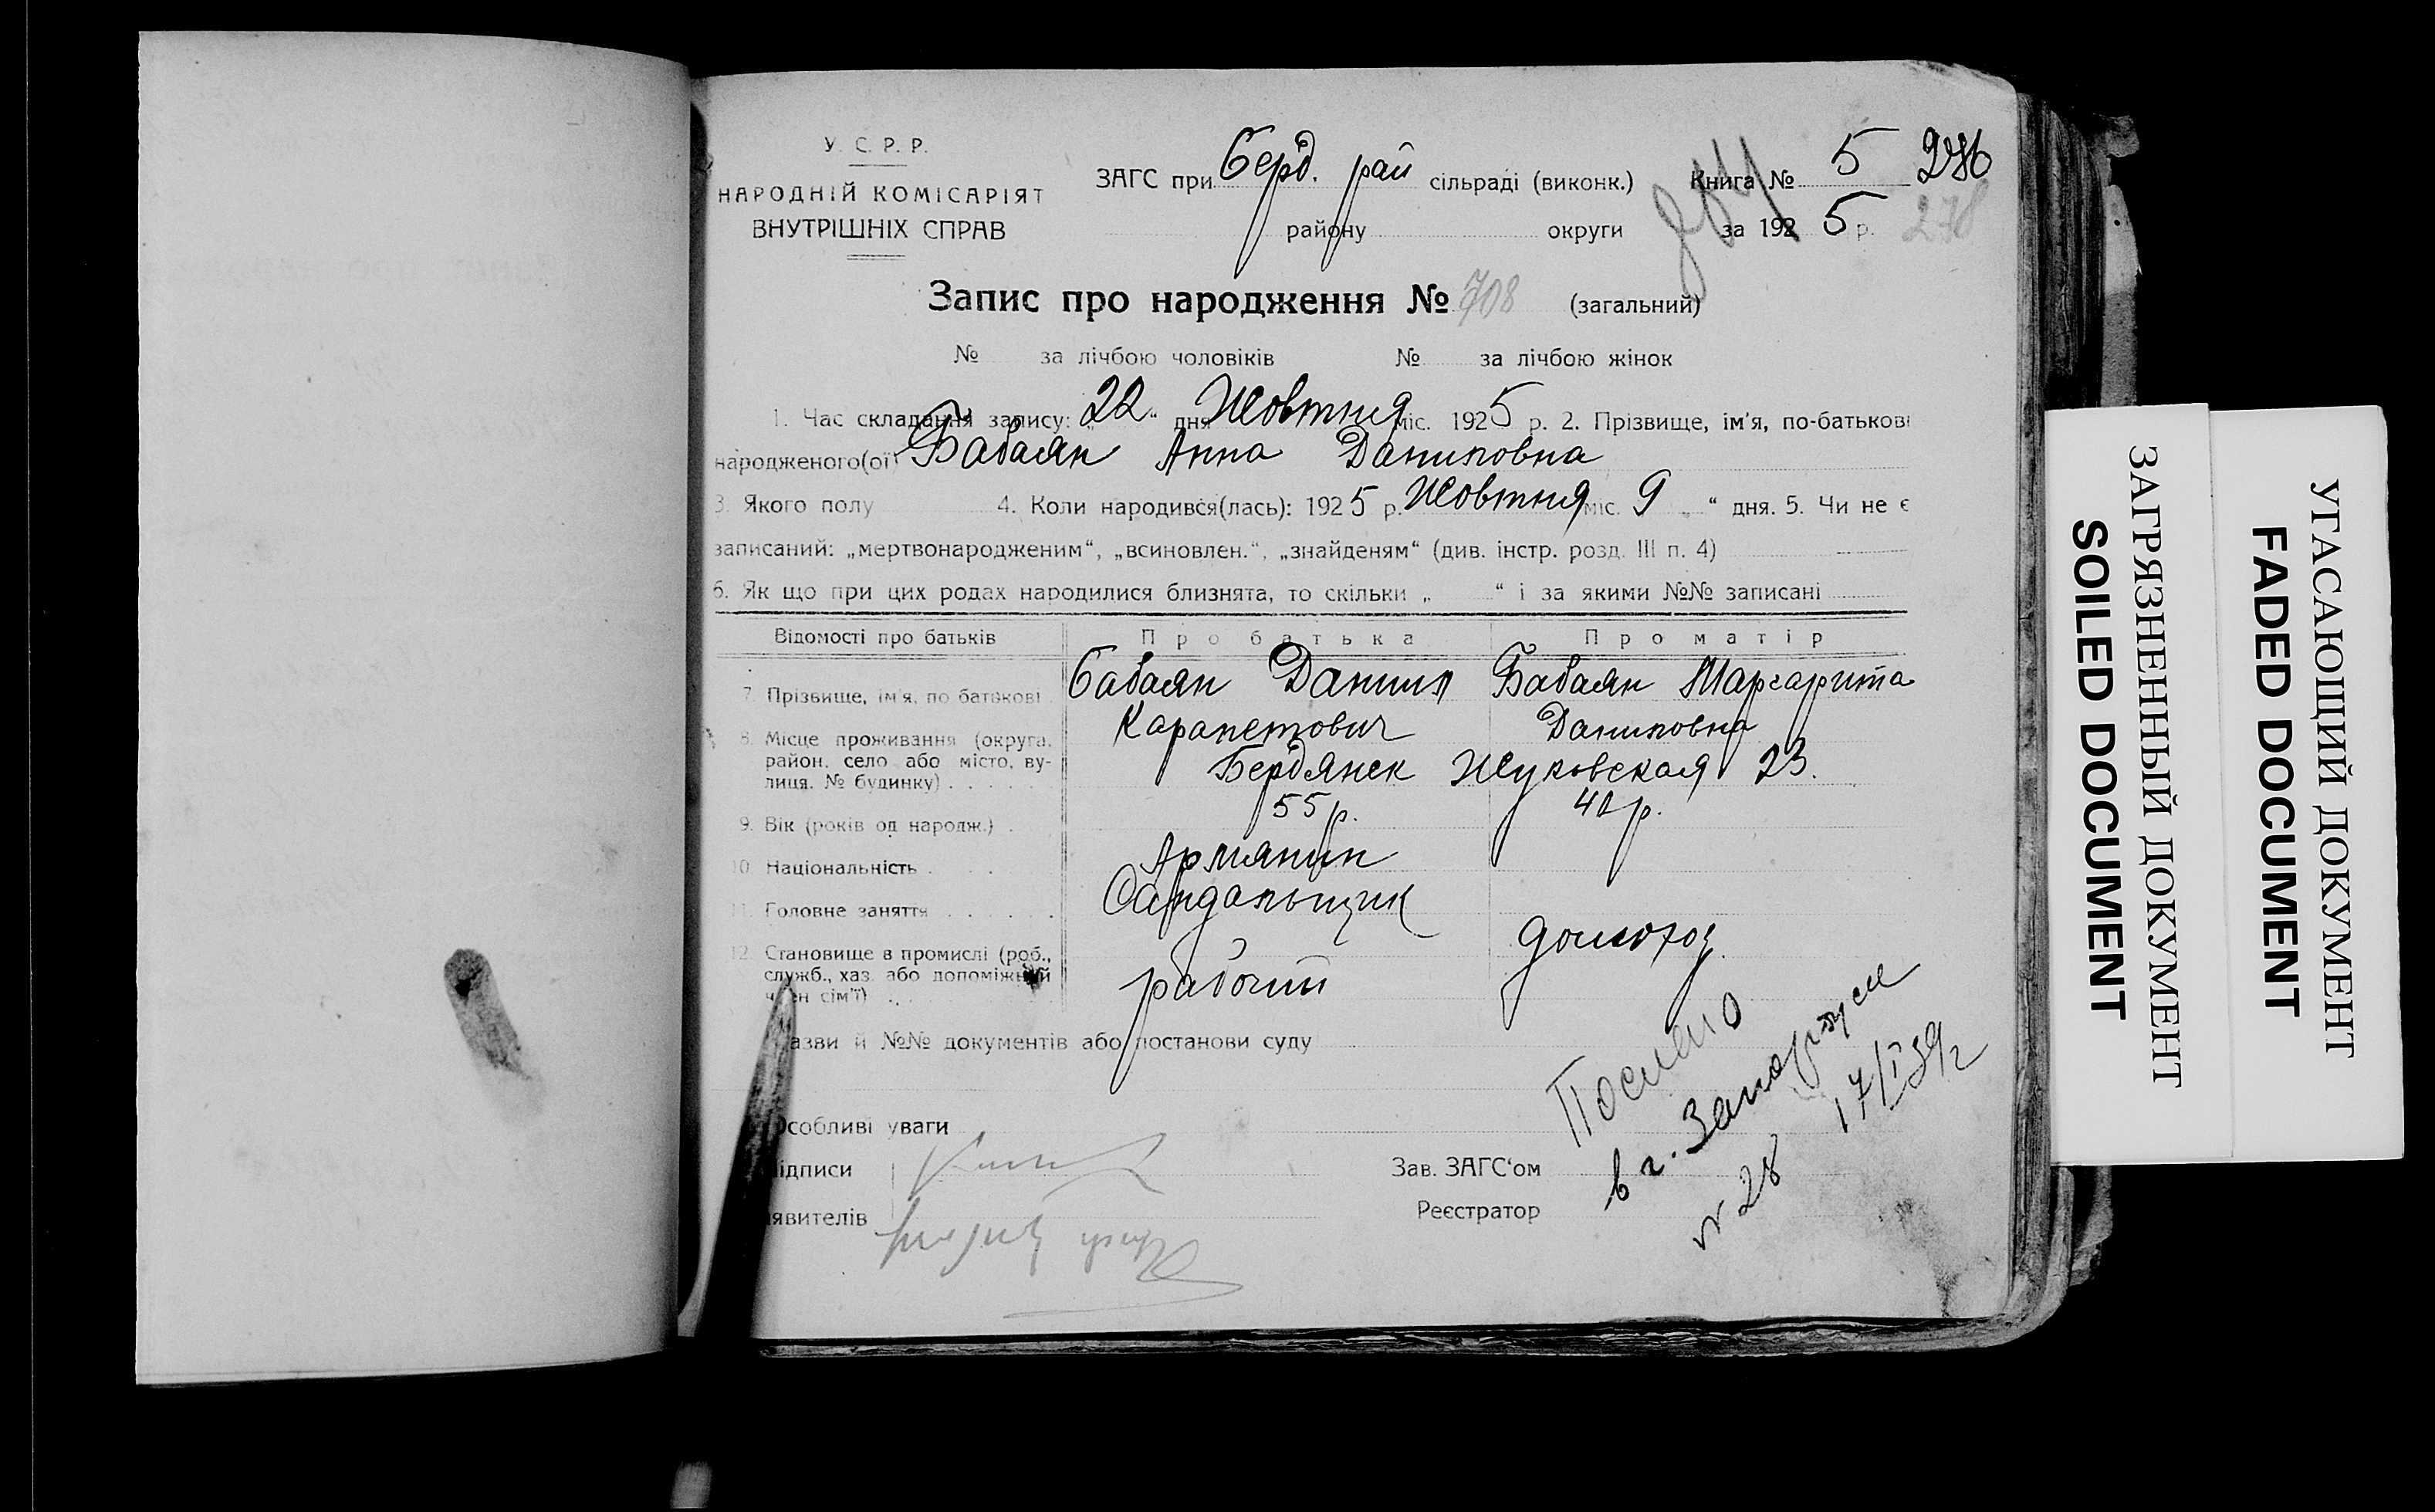 У. С. Р. Р.
НАРОДНІЙ КОМІСАРІЯТ
ВНУТРІШНІХ СПРАВ
ЗАГС при Берд. рай сільраді (виконк.)
району округи
Книга № 5 276
за 1925 р. 278
Запис про народження № 708 (загальний)
№ за лічбою чоловіків № за лічбою жінок
1. Час складання запису: „22“ дня Жовтня міс. 1925 р. 2. Прізвище, ім'я, по-батькові
народженого(ої) Бабаян Анна Даниловна
3. Якого полу 4. Коли народився(лась): 1925 р. Жовтня міс. 9 „ “ дня. 5. Чи не є
записаний: „мертвонародженим“, „всиновлен.“, „знайденям“ (див. інстр. розд. III п. 4)
6. Як що при цих родах народилися близнята, то скільки „ “ і за якими №№ записані
Відомості про батьків Про батька Про матір
7. Прізвище, ім'я, по батькові Бабаян Данил Бабаян Маргарита
Карапетович Даниловна
8. Місце проживання (округа, район, село або місто, вулиця, № будинку) Бердянск Жуковская 23.
9. Вік (років од народж.) 55 р. 42 р.
10. Національність Армянин
11. Головне заняття Сандальщик
домохоз.
12. Становище в промислі (роб., служб., хаз. або допоміжний член сім'ї) рабочий
азви й №№ документів або постанови суду
Особливі уваги
ідписи
явителів
Зав. ЗАГС'ом
Реєстратор
Послано
в г. Запорожье
№ 28 17/I 39 г
ЗАГРЯЗНЕННЫЙ ДОКУМЕНТ
SOILED DOCUMENT
УГАСАЮЩИЙ ДОКУМЕНТ
FADED DOCUMENT